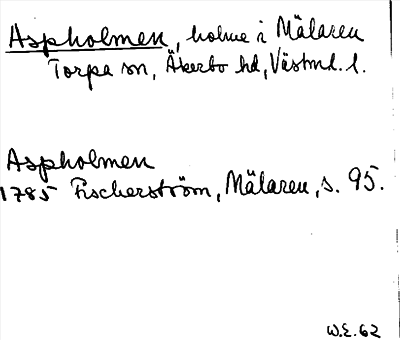 Aspholmen, holme i Mälaren
Torpa sn, Åkerbo hd, Västml. l.
Aspholmen
1785 Fischerström, Mälaren, s. 95.
W.E. 62